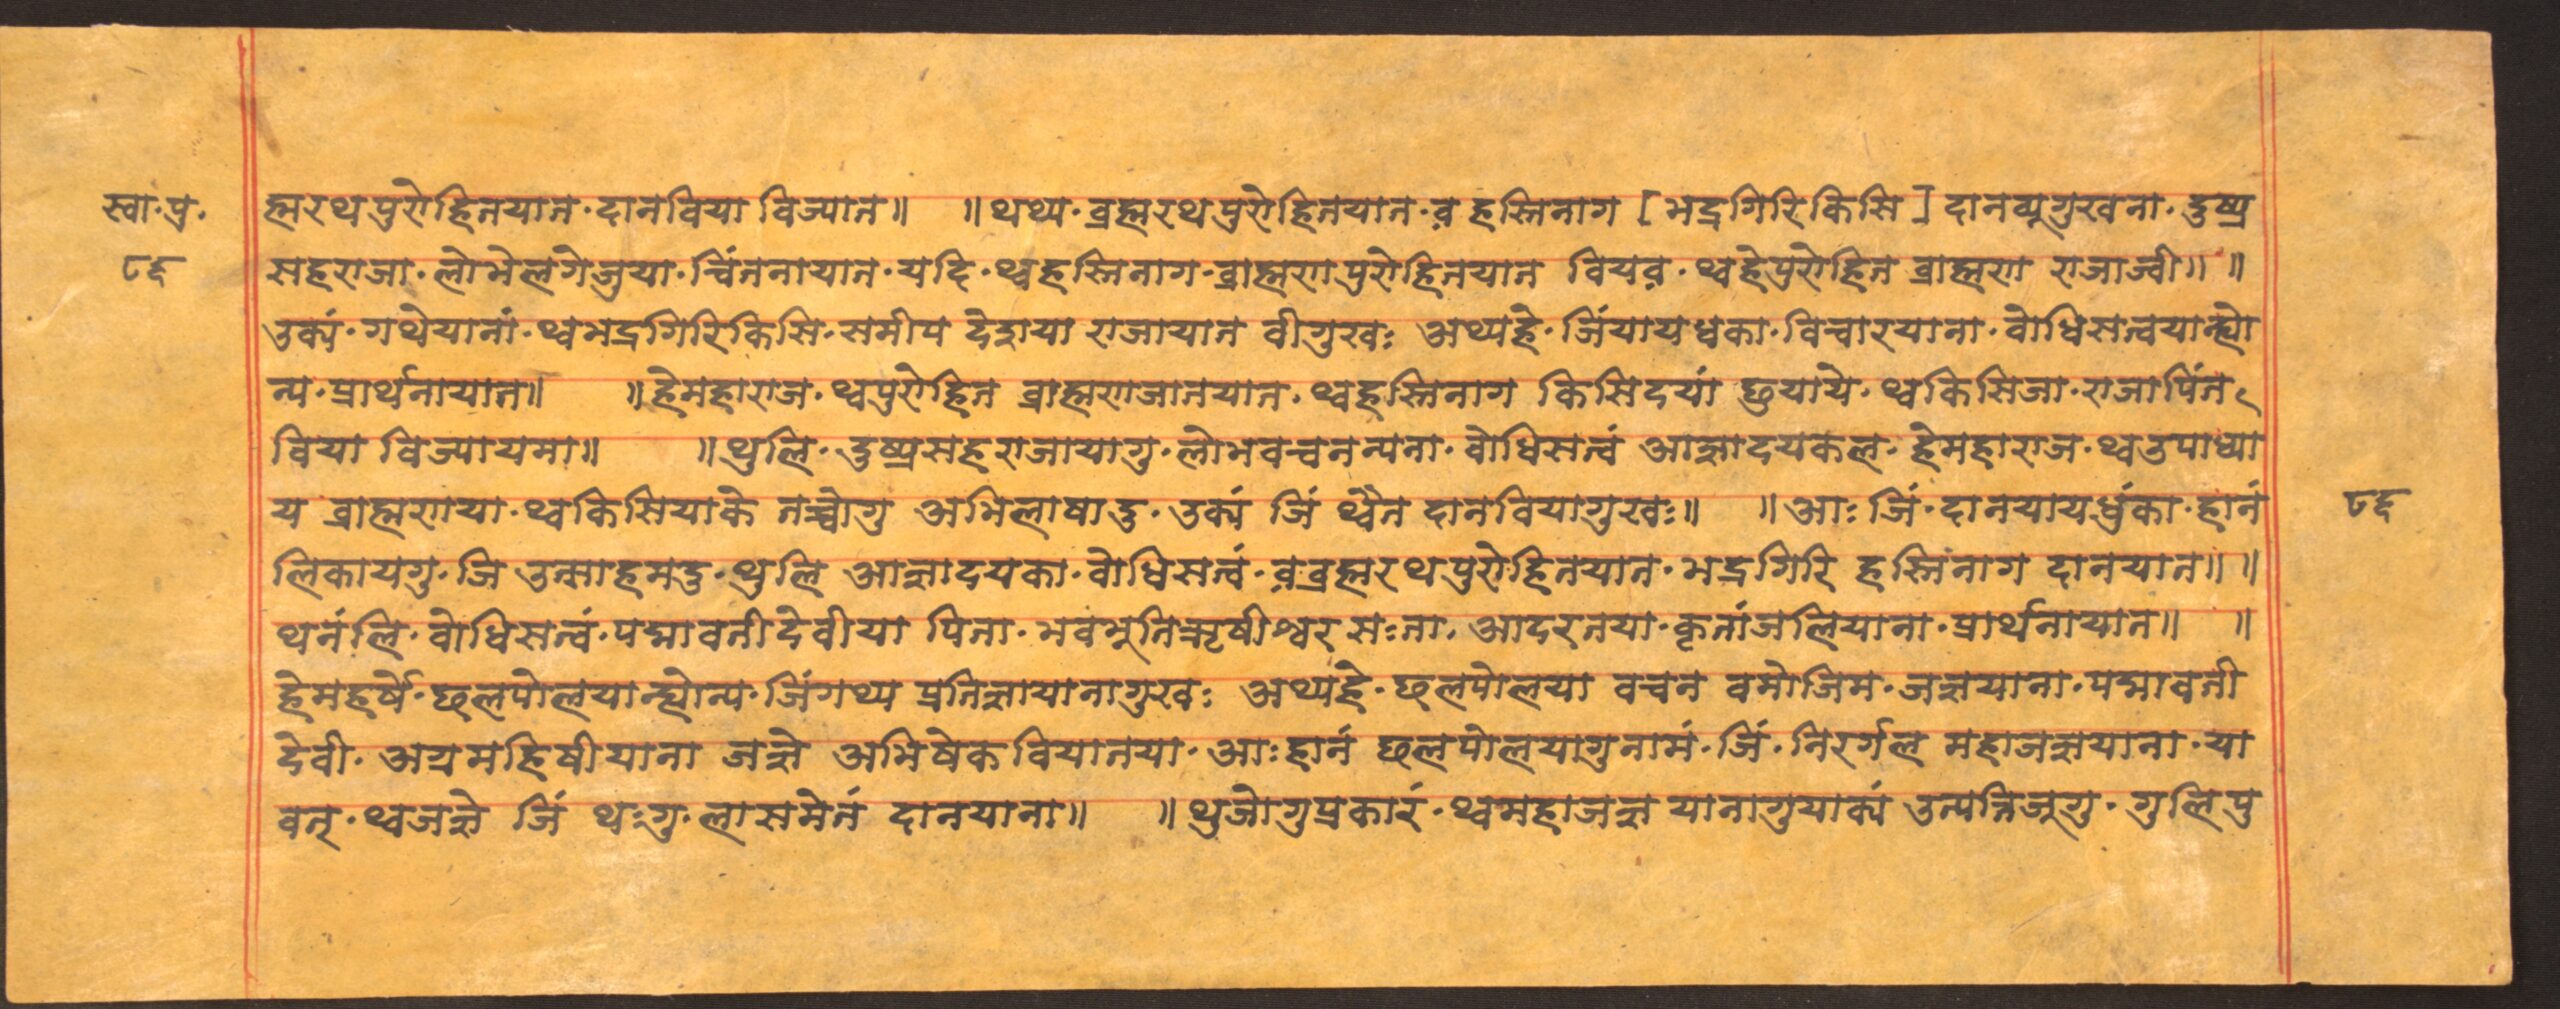 स्वा·प्र·
८६
ह्मरथपुरोहितयात·दानविया विज्यात॥ ॥थथ्य·ब्रह्मरथपुरोहितयात·व़ हस्तिनाग [भद्रगिरिकिसि] दानब्यूगुखना·दुष्प्र
सहराजा·लोभेलगेजुया·चिंतनायात·यदि·थ्वहस्तिनाग·ब्राह्मणपुरोहितयात वियव़·थ्वहेपुरोहित ब्राह्मण राजाज्वी॥ ॥
उक्यं·गथेयानां·थ्वभद्रगिरिकिसि·समीप देशया राजायात वीगुखः अथ्यहे·जिंयायधका·विचारयाना·वोधिसत्वयान्ह्यो
न्य·प्रार्थनायात॥ ॥हेमहाराज·थ्वपुरोहित ब्राह्मणजातयात·थ्वहस्तिनाग किसिदयां छुयाये·थ्वकिसिजा·राजापिंत
विया विज्यायमा॥ ॥थुलि·दुष्प्रसहराजायागु·लोभवचनन्यना·वोधिसत्वं आज्ञादयकल·हेमहाराज·थ्वउपाध्या
य ब्राह्मणया·थ्वकिसियाके तच्वोगु अभिलाषादु·उक्यं जिं थ्वैत दानवियागुखः॥ ॥आः जिं·दानयायधुंका·हानं
लिकायगु·जि उत्साहमदु·थुलि आज्ञादयका·वोधिसत्वं·व़ब्रह्मरथपुरोहितयात·भद्रगिरि हस्तिंनाग दानयात॥ ॥
८६
थनंलि·वोधिसत्वं·पद्मावतीदेवीया पिता·भवभूतिऋषीश्वर सःता·आदरतया·कृतांजलियाना·प्रार्थनायात॥ ॥
हेमहर्षे·छलपोलयान्ह्योन्य·जिंगथ्य प्रतिज्ञायानागुखः अथ्यहे·छलपोलया वचन वमोजिम·जज्ञयाना·पद्मावती
देवी·अग्रमहिषीयाना जज्ञे अभिषेकवियातया·आःहानं छलपोलयागुनामं·जिं·निरर्गल महाजज्ञयाना·या
वत्·थ्वजज्ञे जिं थःगु·लासमेतं दानयाना॥ ॥थुजोगुप्रकारं·थ्वमहाजज्ञ यानागुयाक्यं उत्पत्तिजूगु·गुलिपु